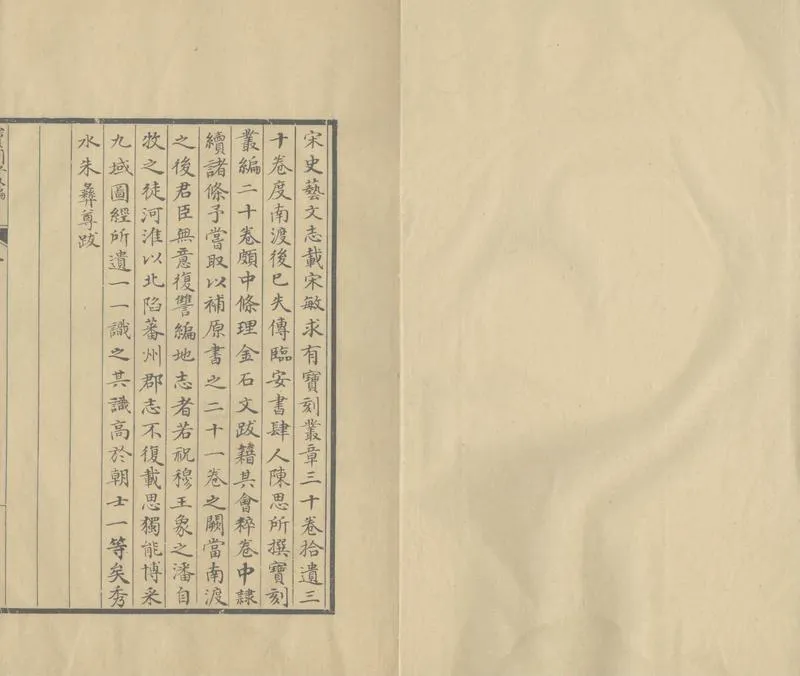 宋史藝文志載宋敏求有寶刻叢章三十卷拾遺三
十卷度南渡後已失傳臨安書肆人陳思所撰寶刻
叢編二十卷頗中條理金石文跋籍其會粹卷中隷
續諸條予嘗取以補原書之二十一卷之闕當南渡
之後君臣無意復讐編地志者若祝穆王象之潘自
牧之徒河淮以北陷蕃州郡志不復載思獨能博采
九域圖經所遺一一識之其識高於朝士一等矣秀
水朱彝尊跋